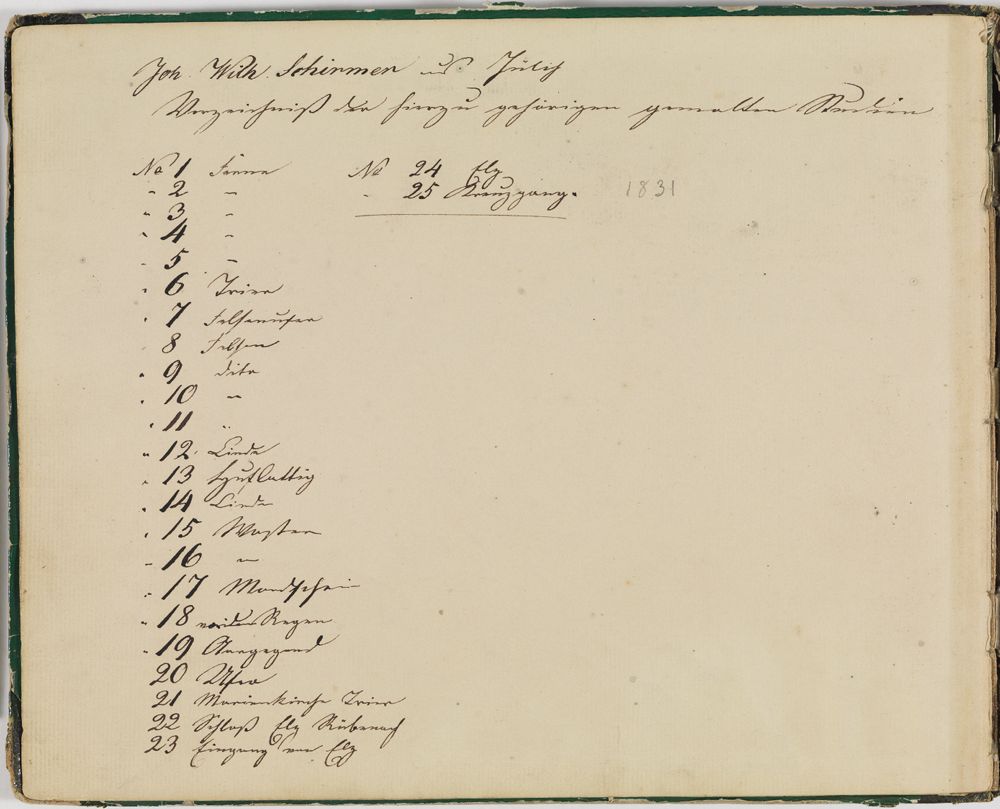 Joh. Wilh. Schirmer aus Jülich
Verzeichniß der hierzu gehörigen gemalten Studien
No 1 Tanne
" 2 "
" 3 "
" 4 "
" 5 "
" 6 Trier
" 7 Felsenufer
8 Felsen
" 9 dito
" 10 "
" 11 "
" 12 Linde
" 13 Huflattig
" 14 Linde
" 15 Wasser
" 16 "
" 17 Mondschein
" 18 Regen
" 19
20 Ufer
21 Marienkirche Trier
22 Schloß Elz Rübenach
23 Eingang von Elz
No 24 Elz
" 25 Kreuzgang.
1831